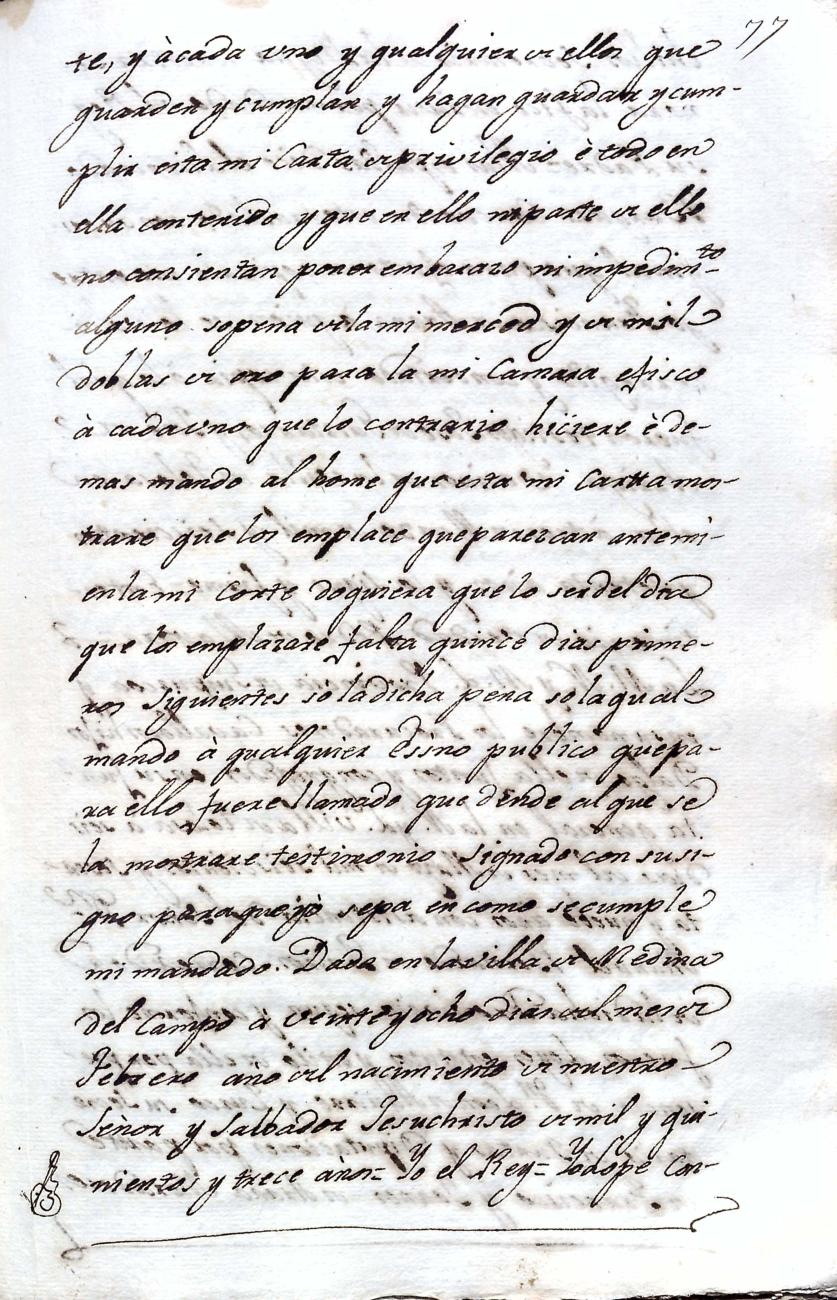 77
te, y à cada vno y qualquier de ellos que
guarden y cumplan y hagan guardar y cum-
plir esta mi Carta de privilegio è todo en
ella contenido y que en ello ni parte de ello
no consientan poner embarazo ni impedimto
alguno sopena de la mi merced y de mil
doblas de oro para la mi Camara efisco
à cada vno que lo contrario hiciere è de-
mas mando al home que esta mi Cartta mos-
trare que los emplace que parezcan ante mi
en la mi Corte do quiera que lo ser del dia
que los emplazare fasta quince dias prime-
ros siguientes sò la dicha pena so la qual
mando à qualquier Essno publico que pa-
ra ello fuere llamado que dende al que se
la mostrare testimonio signado con su si-
gno para que yo sepa en como se cumple
mi mandado. Dada en la villa de Medina
del Campo à veinte y ocho dias del mes de
Febrero año del nacimiento de nuestro
Señor y Salbador Jesuchristo de mil y qui-
nientos y trece años= Yo el Rey= Yo Lope Con-